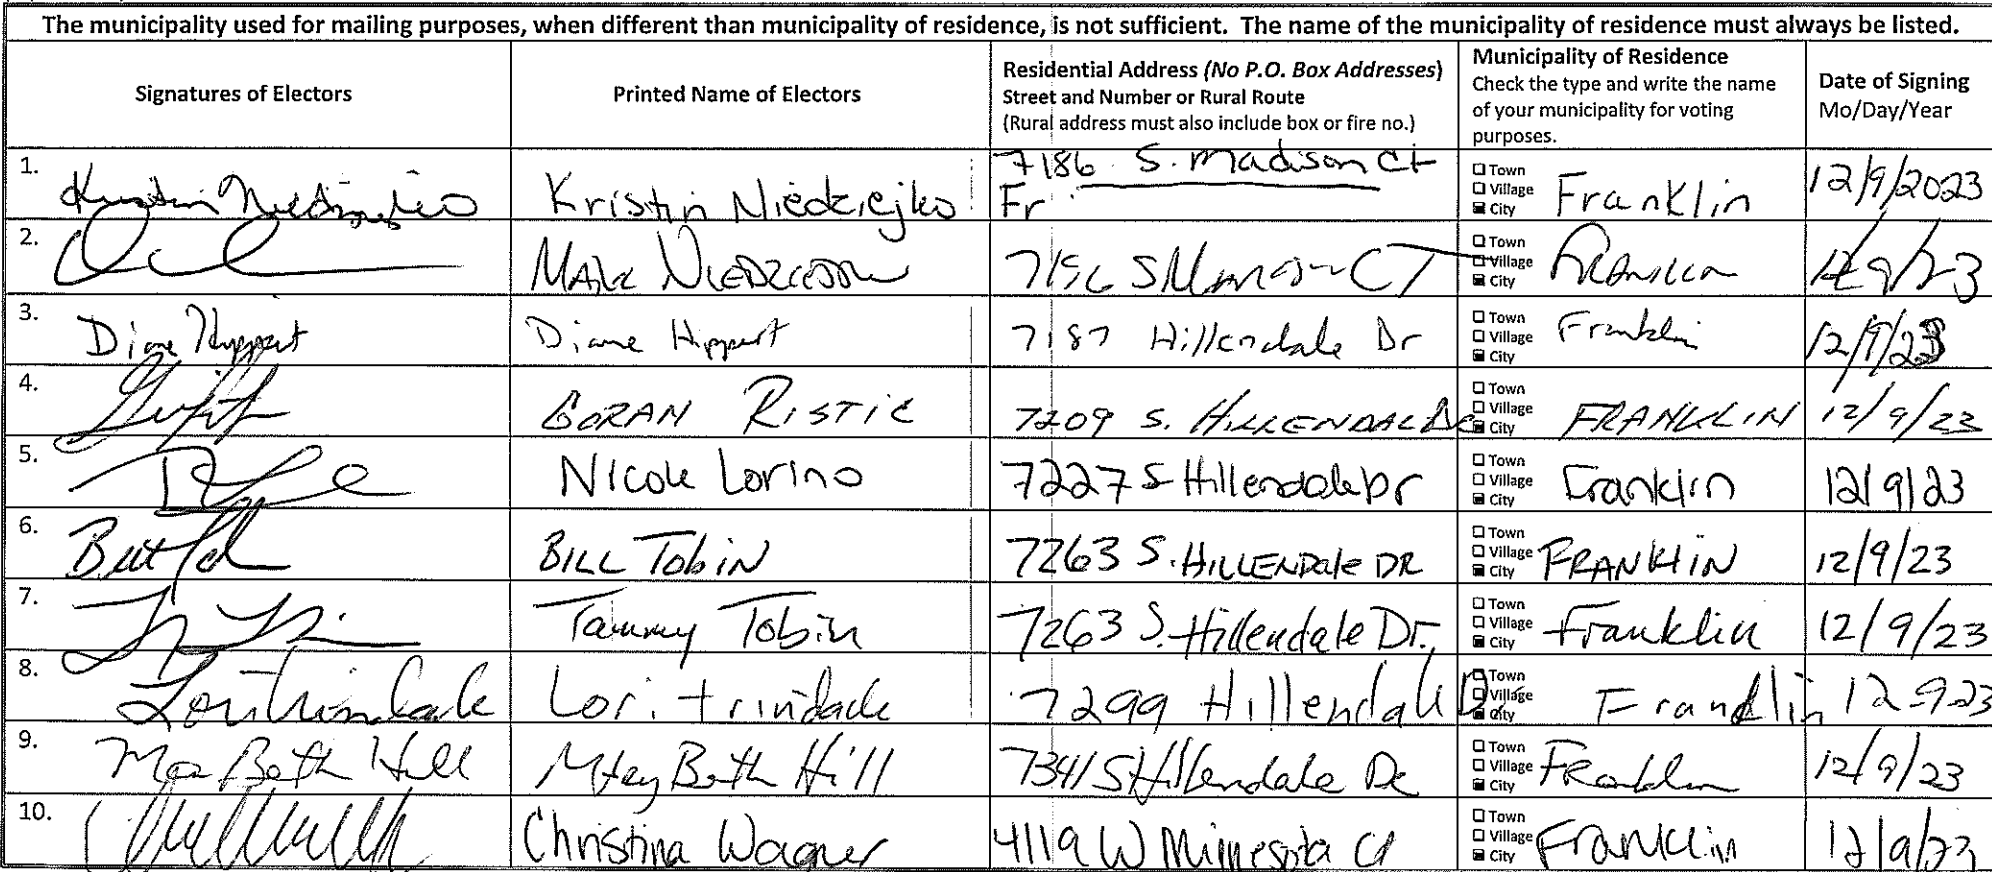 The municipality used for mailing purposes, when different than municipality of residence, is not sufficient. The name of the municipality of residence must always be listed.
Signatures of Electors
Printed Name of Electors
Residential Address (No P.O. Box Addresses)
Street and Number or Rural Route
(Rural address must also include box or fire no.)
Municipality of Residence
Check the type and write the name
of your municipality for voting
purposes.
Date of Signing
Mo/Day/Year
1. Kristin Niedziejko 7186 S. Madison Ct
Fr
Town
Village
City
Franklin 12/9/2023
2. Mark CT
Town
Village
City
Franklin 12/9/23
3. Diane Hippert Diane Hippert 7187 Hillendale Dr
Town
Village
City
Franklin 12/9/23
4. GORAN RISTIC 7209 S. HILLENDALE DR
Town
Village
City
FRANKLIN 12/9/23
5. Nicole Lorino 7227 S Hillendale Dr
Town
Village
City
Franklin 12/9/23
6. BILL TobiN 7263 S. HILLENDale DR
Town
Village
City
FRANKLIN 12/9/23
7. Tammy Tobin 7263 S. Hillendale Dr.
Town
Village
City
Franklin 12/9/23
8. Lori Trindade Lori trindade 7299 Hillendale Dr
Town
Village
City
Franklin 12-9-23
9. Mary Beth Hill Mary Beth Hill 7341 S Hillendale Dr
Town
Village
City
Franklin 12/9/23
10. Christina Wagner 4119 W Minnesota Ct
Town
Village
City
Franklin 12/9/23